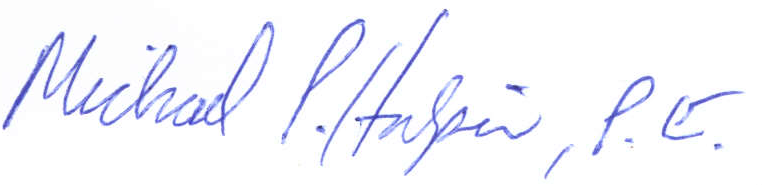 Michael P. Halpin, P.E.